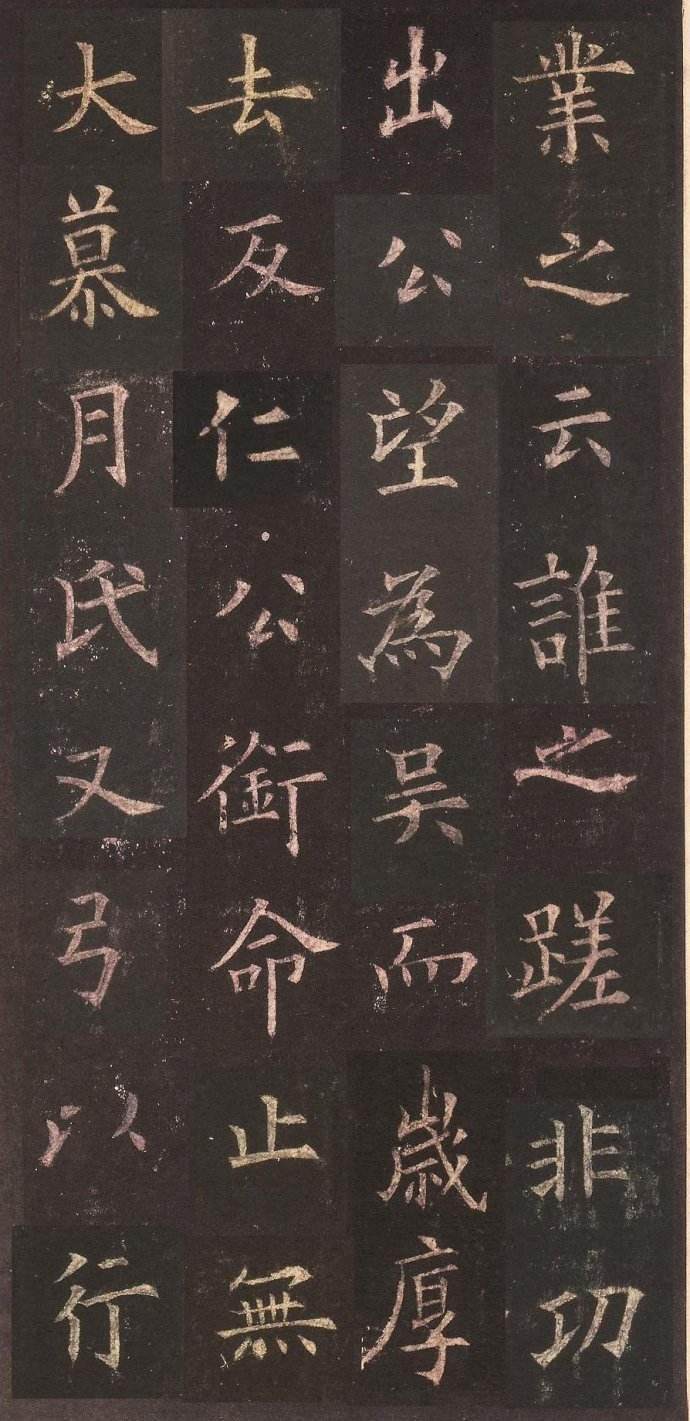 業之云誰之蹉非功
出公望為吴而歲厚
去反仁公銜命止無
大慕月氏又弓以行